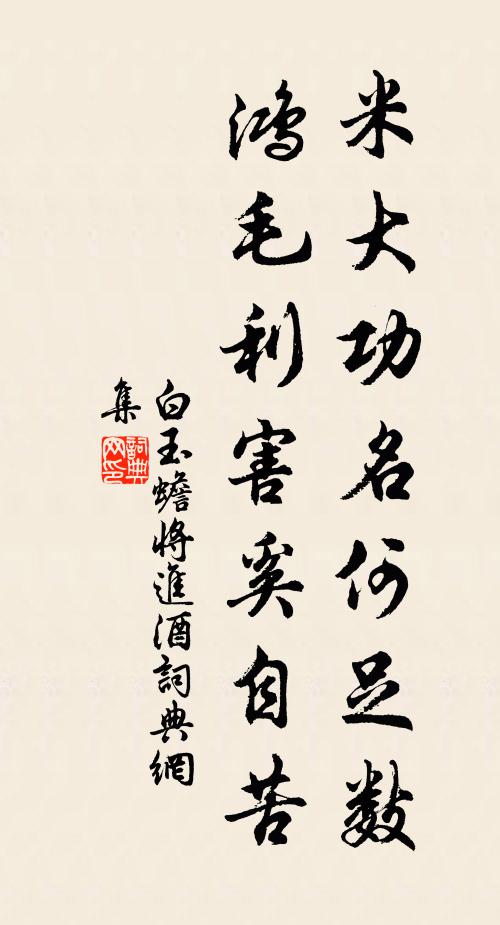 米大功名何足数
鸿毛利害奚自苦
白玉蟾将進酒詞典網
集
詞典网印